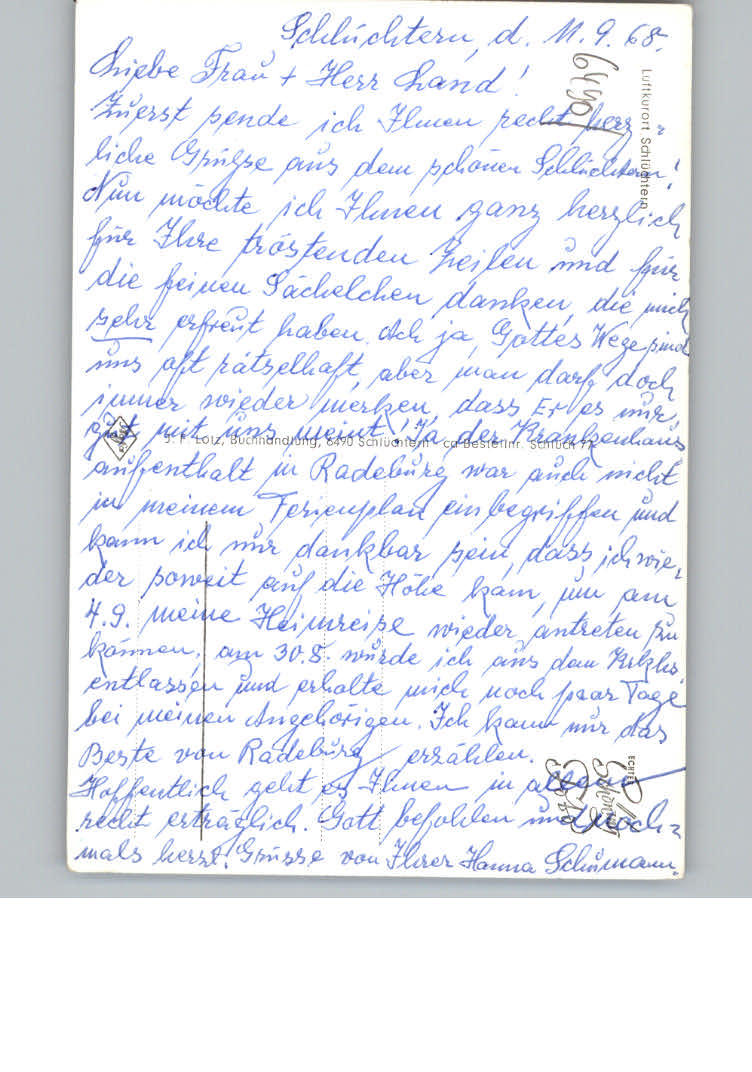 Schlüchtern, d. 11.9.68.
Liebe Frau + Herr Land!
Zuerst sende ich Ihnen recht herz=
liche Grüsse aus dem schönen Schlüchtern!
Nun möchte ich Ihnen ganz herzlich
für Ihre tröstenden Zeilen und für
die feinen Sächelchen danken, die mich
sehr erfreut haben. Ach ja, Gottes Wege sind
uns oft rätselhaft, aber man darf doch
immer wieder merken, dass Er es nur
gut mit uns meint! Ja, der Krankenhaus
aufenthalt in Radeburg war auch nicht
in meinem Ferienplan einbegriffen und
kann ich nur dankbar sein, dass ich wie,
der soweit auf die Höhe kam, um am
4.9. meine Heimreise wieder antreten zu
können, am 30.8. wurde ich aus dem Krkhs.
entlassen und erholte mich noch paar Tage
bei meinen Angehörigen. Ich kann nur das
Beste von Radeburg erzählen.
Hoffentlich geht es Ihnen in allem
recht erträglich. Gott befohlen und noch=
mals herzl. Grüsse von Ihrer Hanna Schumann.
6490
Luftkurort Schlüchtern
J. F. Lotz, Buchhandlung, 6490 Schlüchtern · ca Bestellnr. Schlüch 77
ECHTE
Schöning